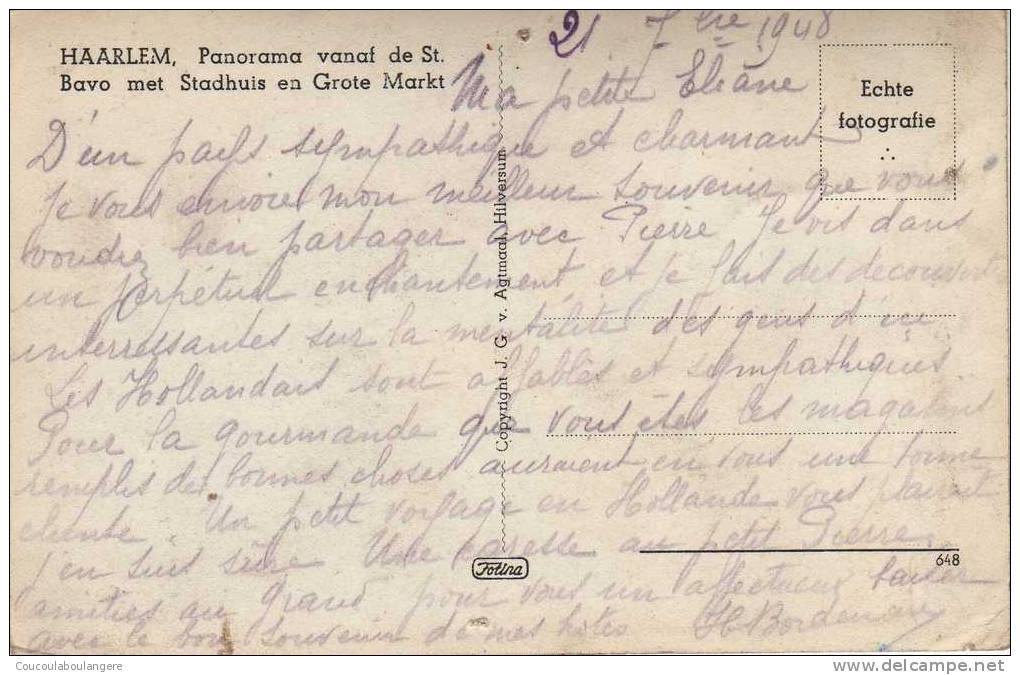 HAARLEM, Panorama vanaf de St.
Bavo met Stadhuis en Grote Markt
21 7bre 1948
Echte
fotografie
Ma petite Eliane
D'un pays sympathique et charmant
Je vous envoie mon meilleur souvenir que vous
voudrez bien partager avec Pierre Je vis dans
un perpétuel enchantement et je fais des decouvertes
interressantes sur la mentalité des gens d'ici
Les Hollandais sont affables et sympathiques
Pour la gourmande que vous êtes les magasins
remplis de bonnes choses auraient en vous une bonne
cliente. Un petit voyage en Hollande vous plairait
j'en suis sûre Une caresse au petit Pierre,
amities au grand pour vous un affectueux baiser
avec le bon souvenir de mes hôtes
Copyright J. G. v. Agtmaal, Hilversum
Fotina
648
Coucoulaboulangere
http://www.delcampe.net